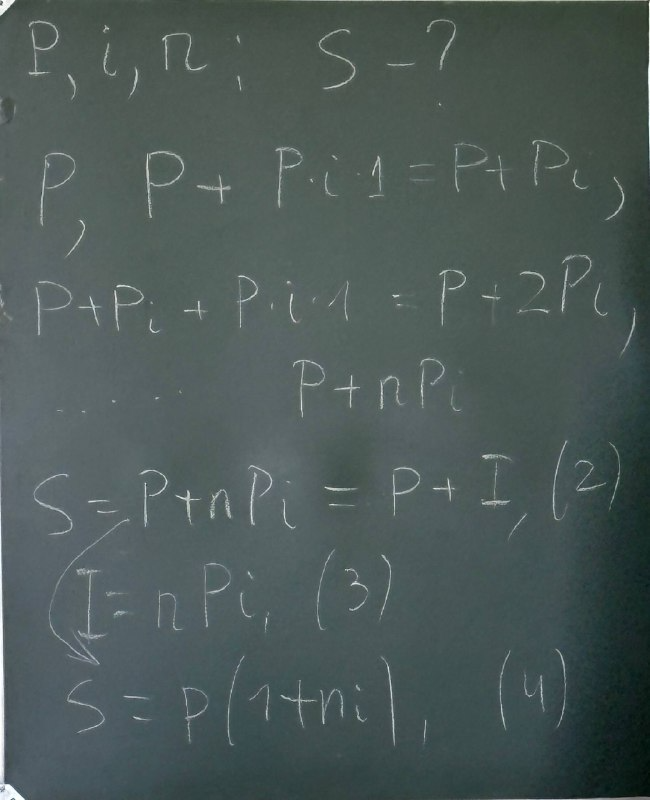 P, i, n; S - ?
P, P + P·i·1 = P + Pi,
P + Pi + P·i·1 = P + 2Pi,
...... P + nPi
S = P + nPi = P + I, (2)
I = nPi, (3)
S = P(1 + ni), (4)